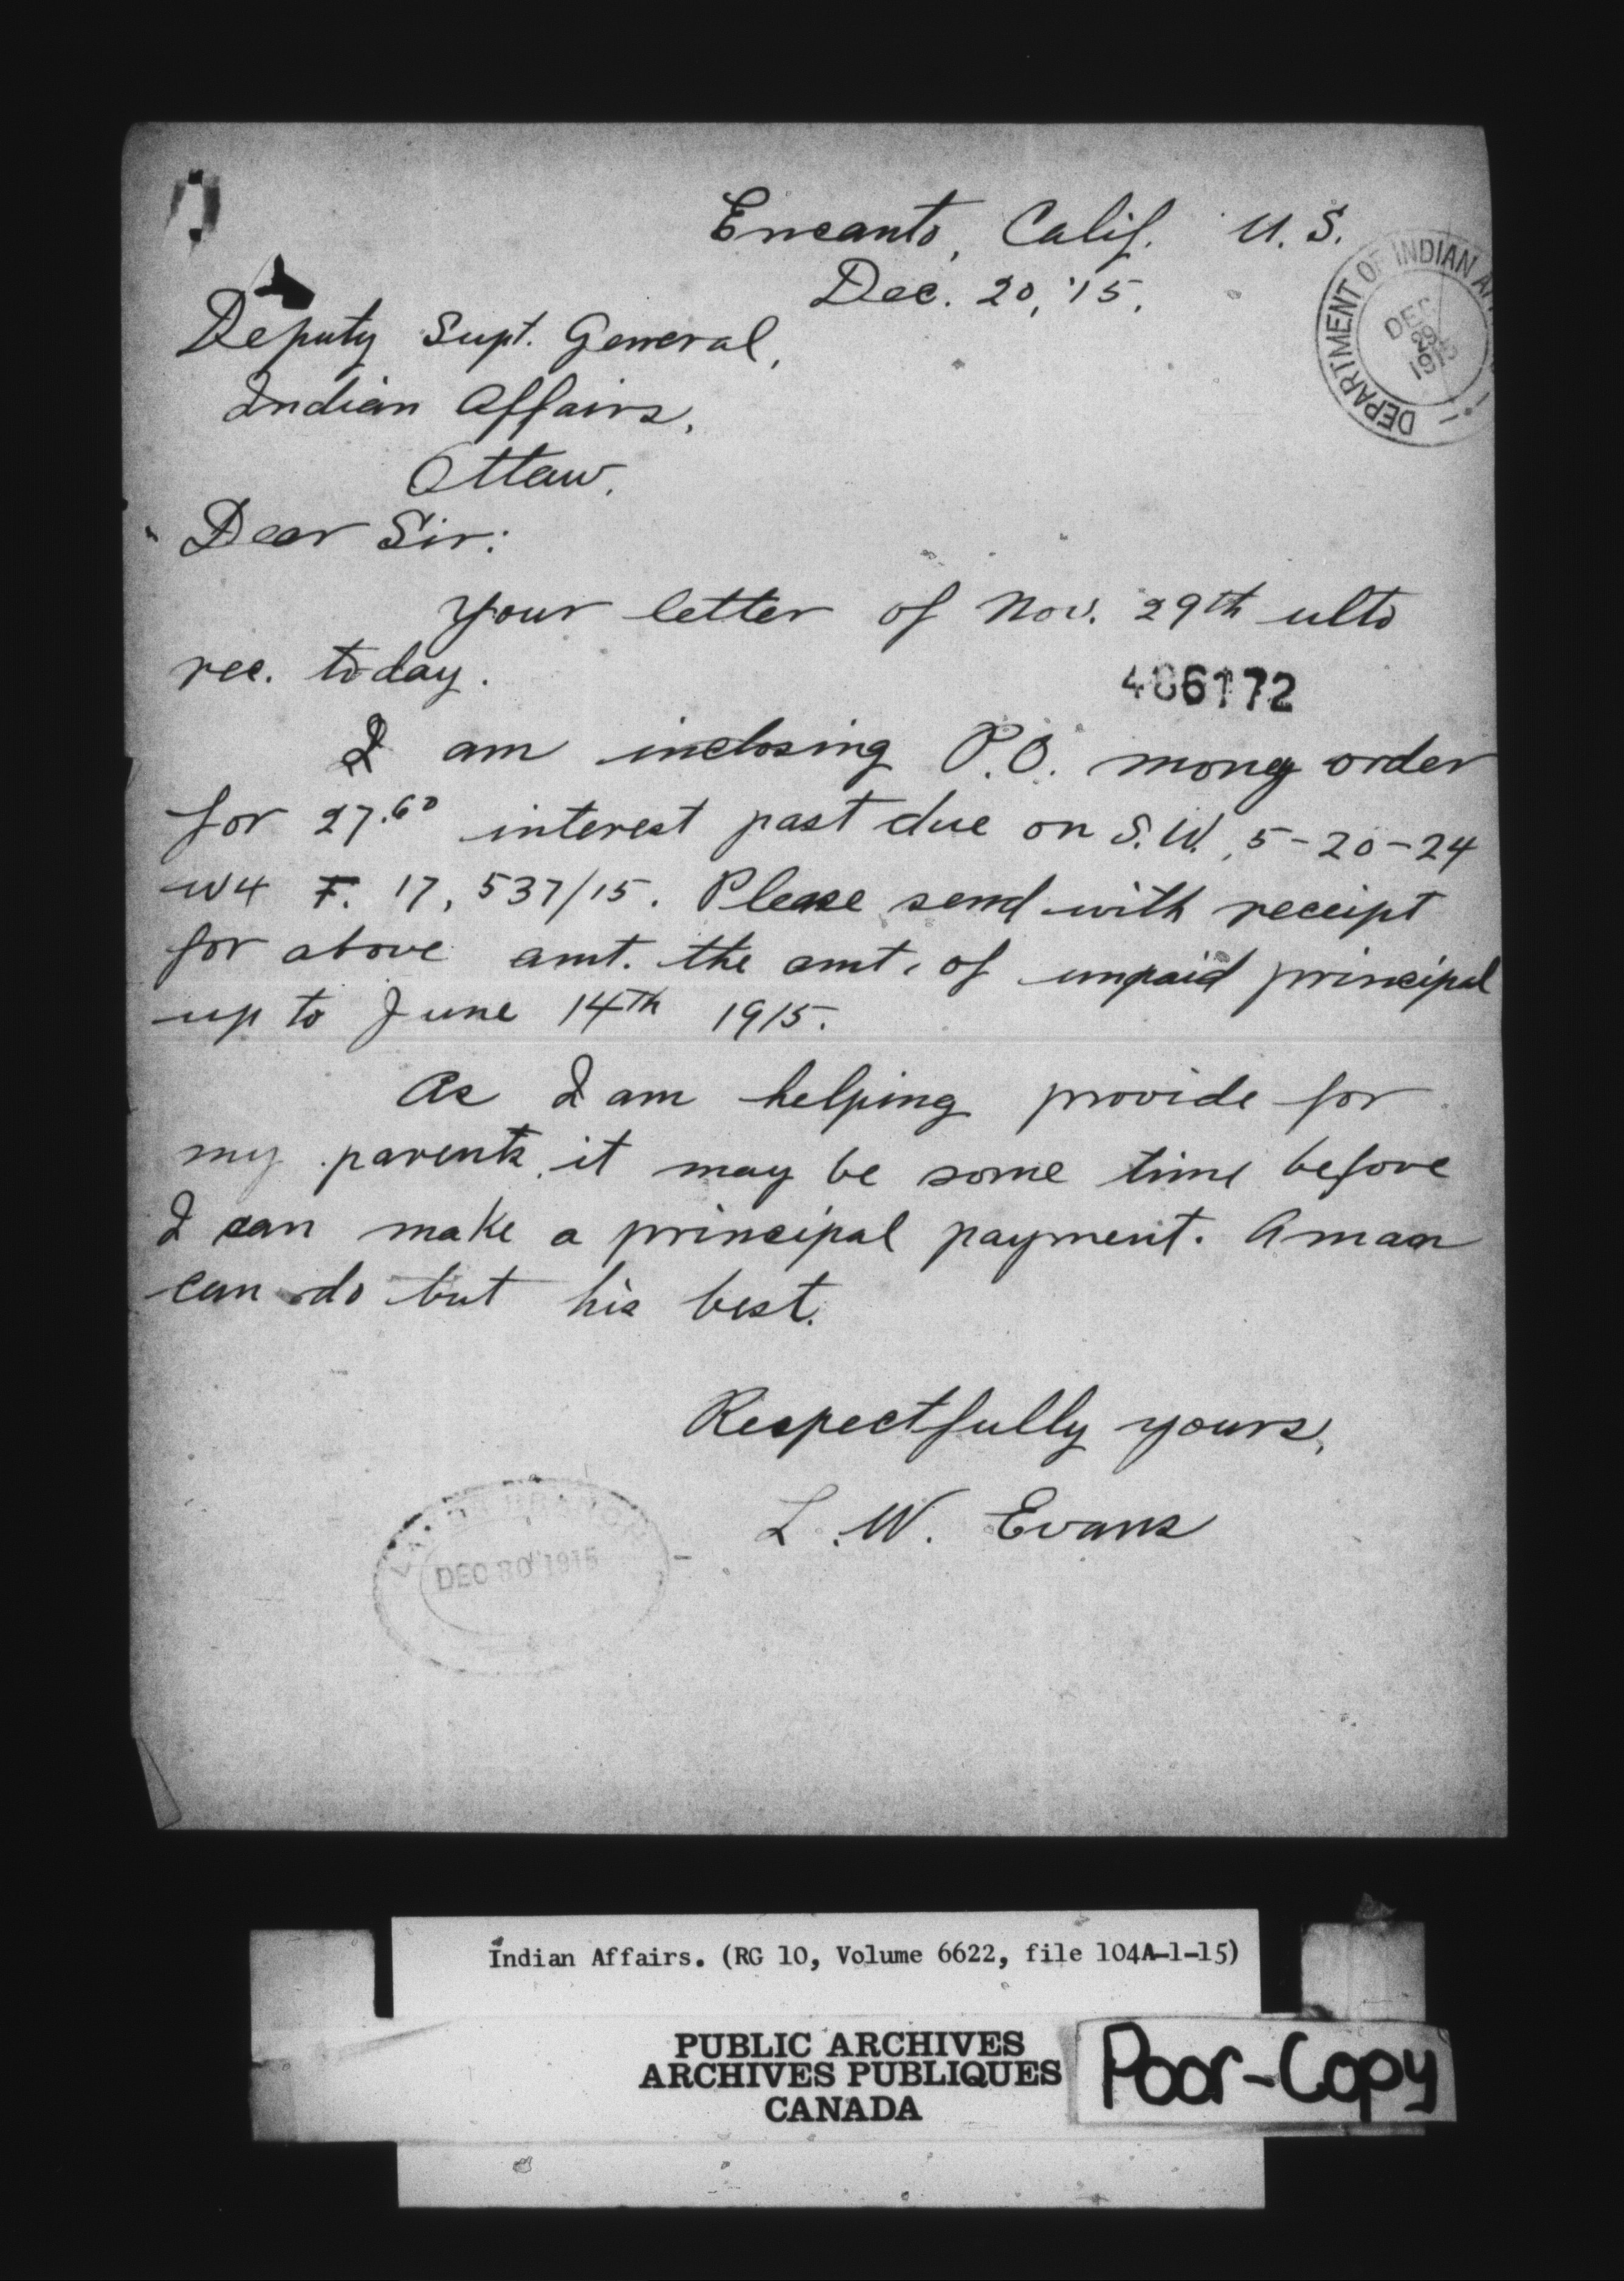 Encanto, Calif. U.S.
Dec. 20, '15.
DEPARTMENT OF INDIAN
DEC 29 1915
Deputy Supt. General,
Indian Affairs,
Ottaw.
Dear Sir:
Your letter of Nov. 29th ulto
rec. today.
406172
I am inclosing P.O. mony order
for 27.60 interest past due on S.W. 5-20-24
W4 F. 17,537/15. Please send with receipt
for above amt. the amt. of unpaid principal
up to June 14th 1915.
As I am helping provide for
my parents, it may be some time before
I can make a principal payment. A man
can do but his best.
Respectfully yours,
L. W. Evans
DEC 30 1915
Indian Affairs. (RG 10, Volume 6622, file 104A-1-15)
PUBLIC ARCHIVES
ARCHIVES PUBLIQUES
CANADA
Poor-Copy